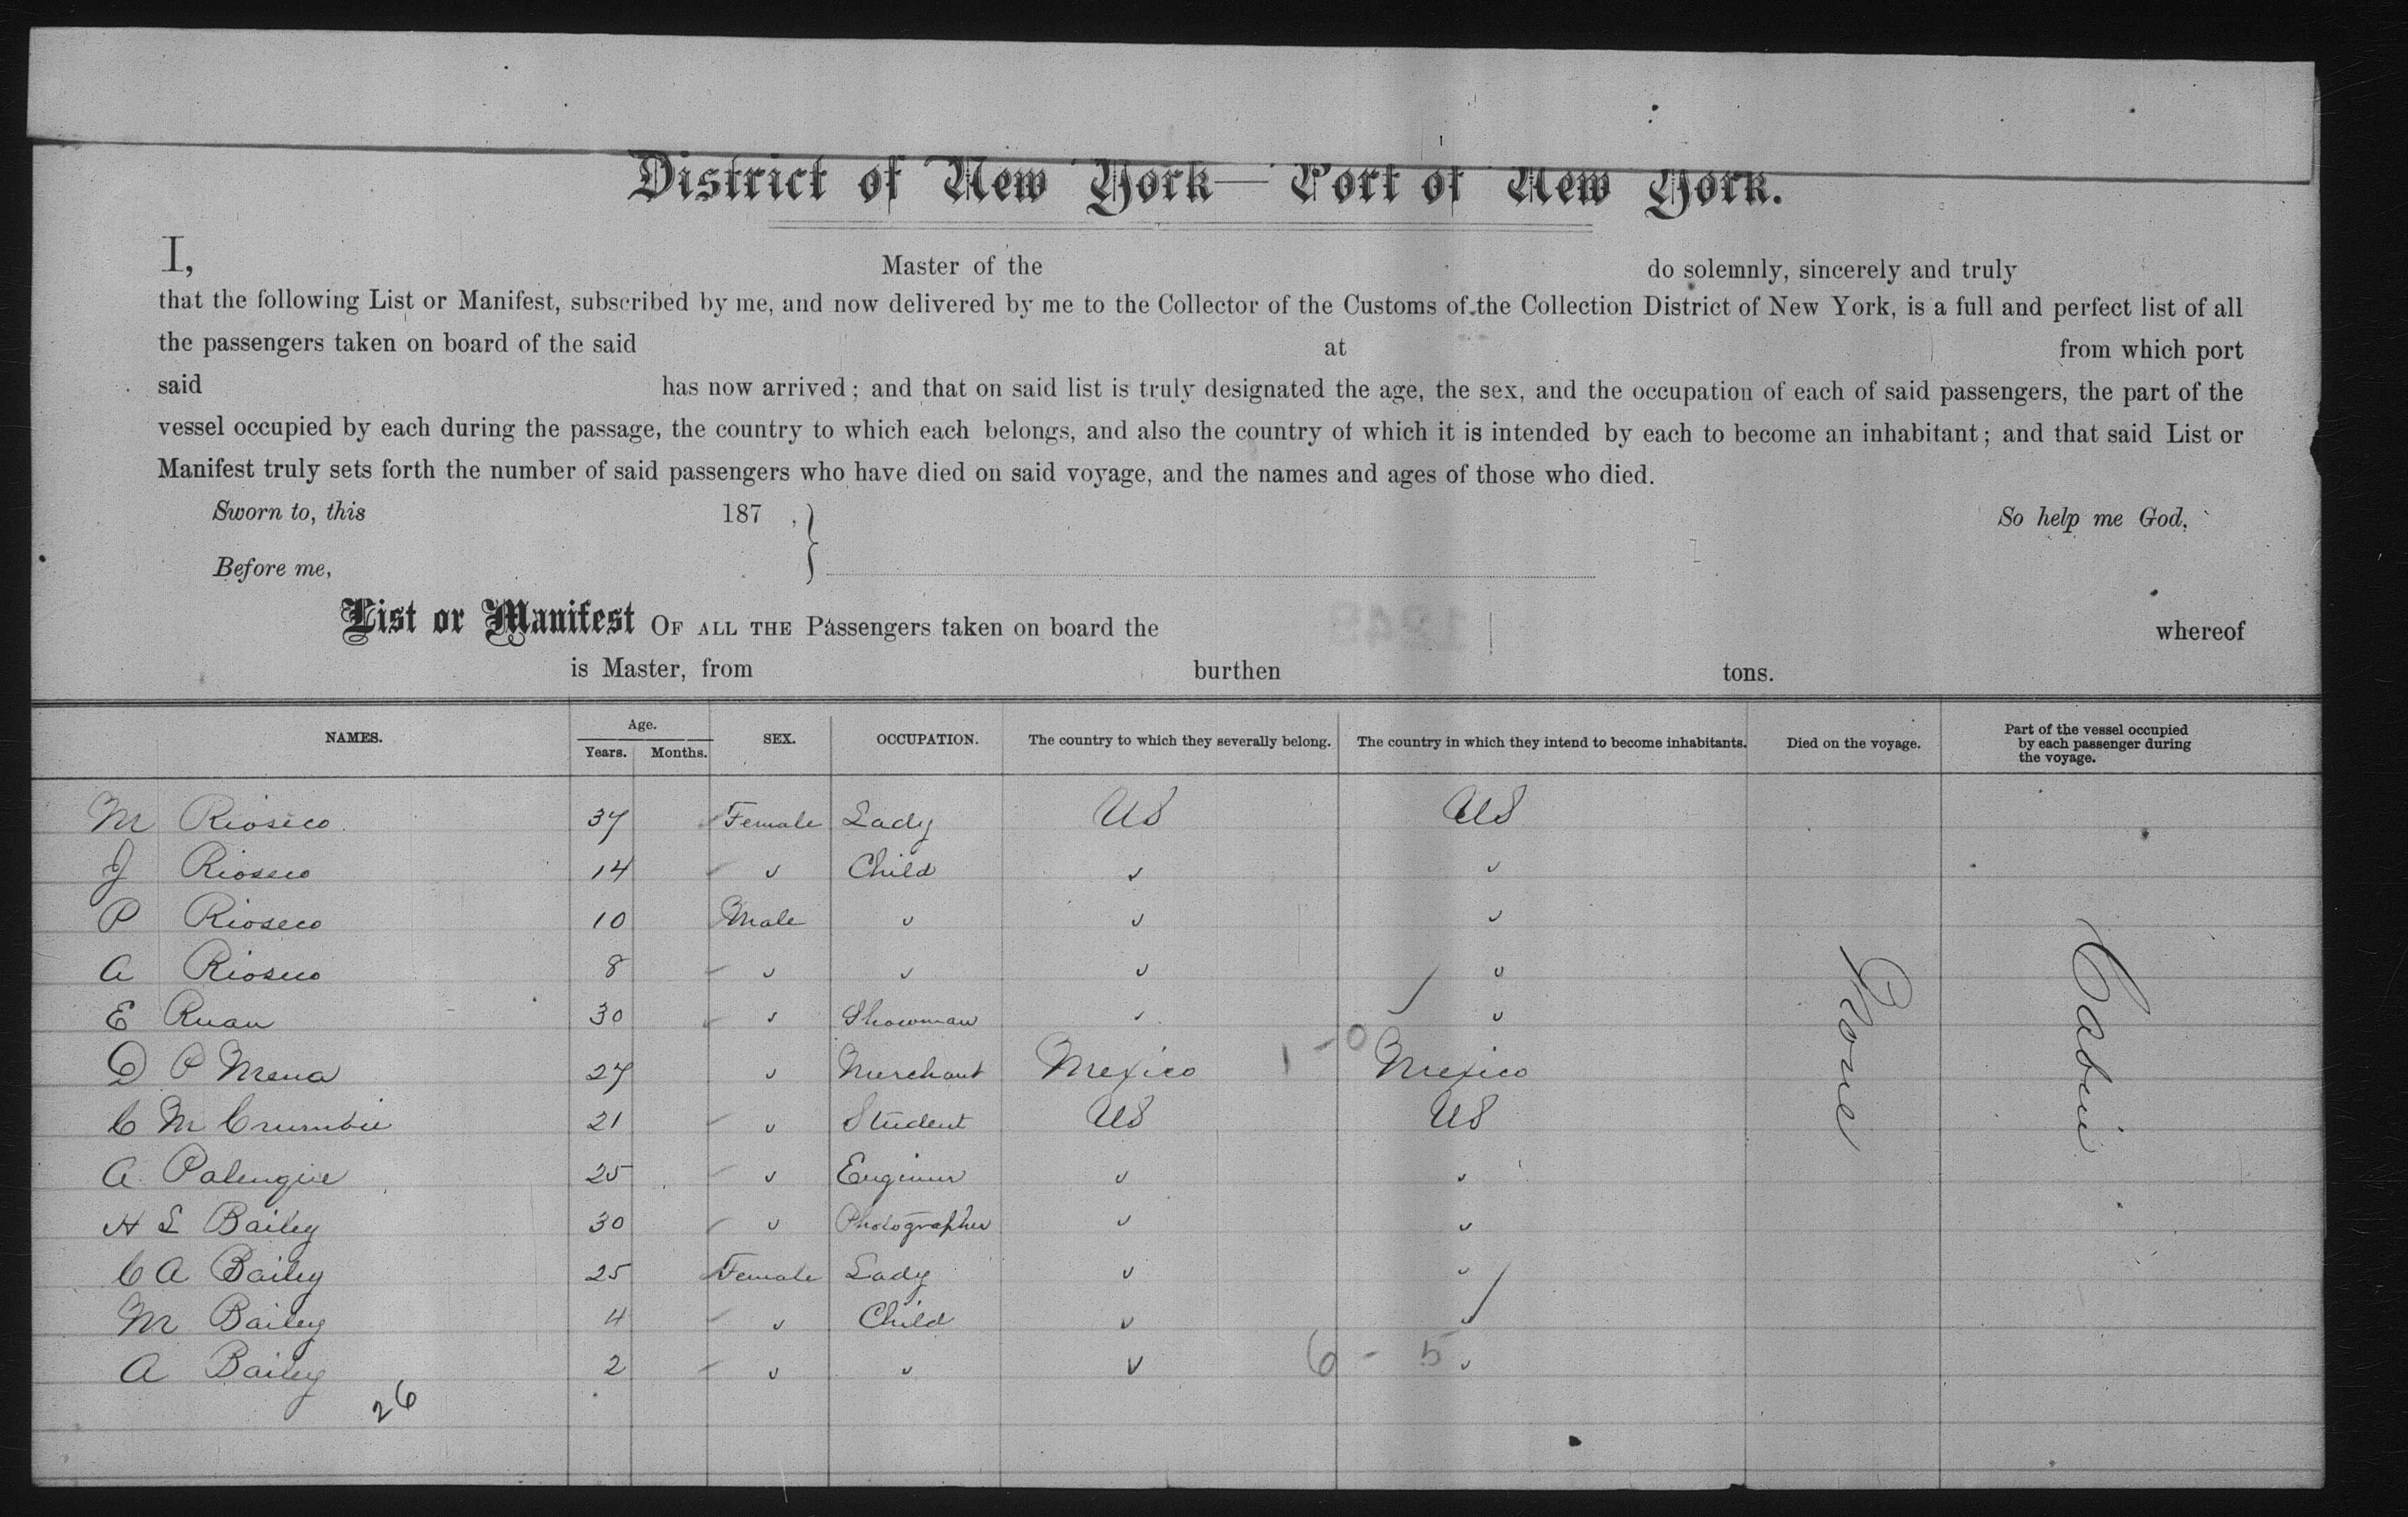 District of New York— Port of New York.
I, Master of the do solemnly, sincerely and truly
that the following List or Manifest, subscribed by me, and now delivered by me to the Collector of the Customs of the Collection District of New York, is a full and perfect list of all
the passengers taken on board of the said at from which port
said has now arrived; and that on said list is truly designated the age, the sex, and the occupation of each of said passengers, the part of the
vessel occupied by each during the passage, the country to which each belongs, and also the country of which it is intended by each to become an inhabitant; and that said List or
Manifest truly sets forth the number of said passengers who have died on said voyage, and the names and ages of those who died.
Sworn to, this 187 , So help me God,
Before me,
List or Manifest OF ALL THE Passengers taken on board the whereof
is Master, from burthen tons.
NAMES. Age. Years. Months. SEX. OCCUPATION. The country to which they severally belong. The country in which they intend to become inhabitants. Died on the voyage. Part of the vessel occupied by each passenger during the voyage.
M Rioseco 37 Female Lady US US
J Rioseco 14 " Child " "
P Rioseco 10 Male " " "
A Rioseco 8 " " " "
E Ruan 30 " Showman " "
D P Mena 27 " Merchant Mexico 1 - 0 Mexico
C M Crumbie 21 " Student US US
A 25 " Engineer " "
H L Bailey 30 " Photographer " "
C A Bailey 25 Female Lady " "
M Bailey 4 " Child " "
A Bailey 2 " " " 6 - 5 "
26
None
Cabin